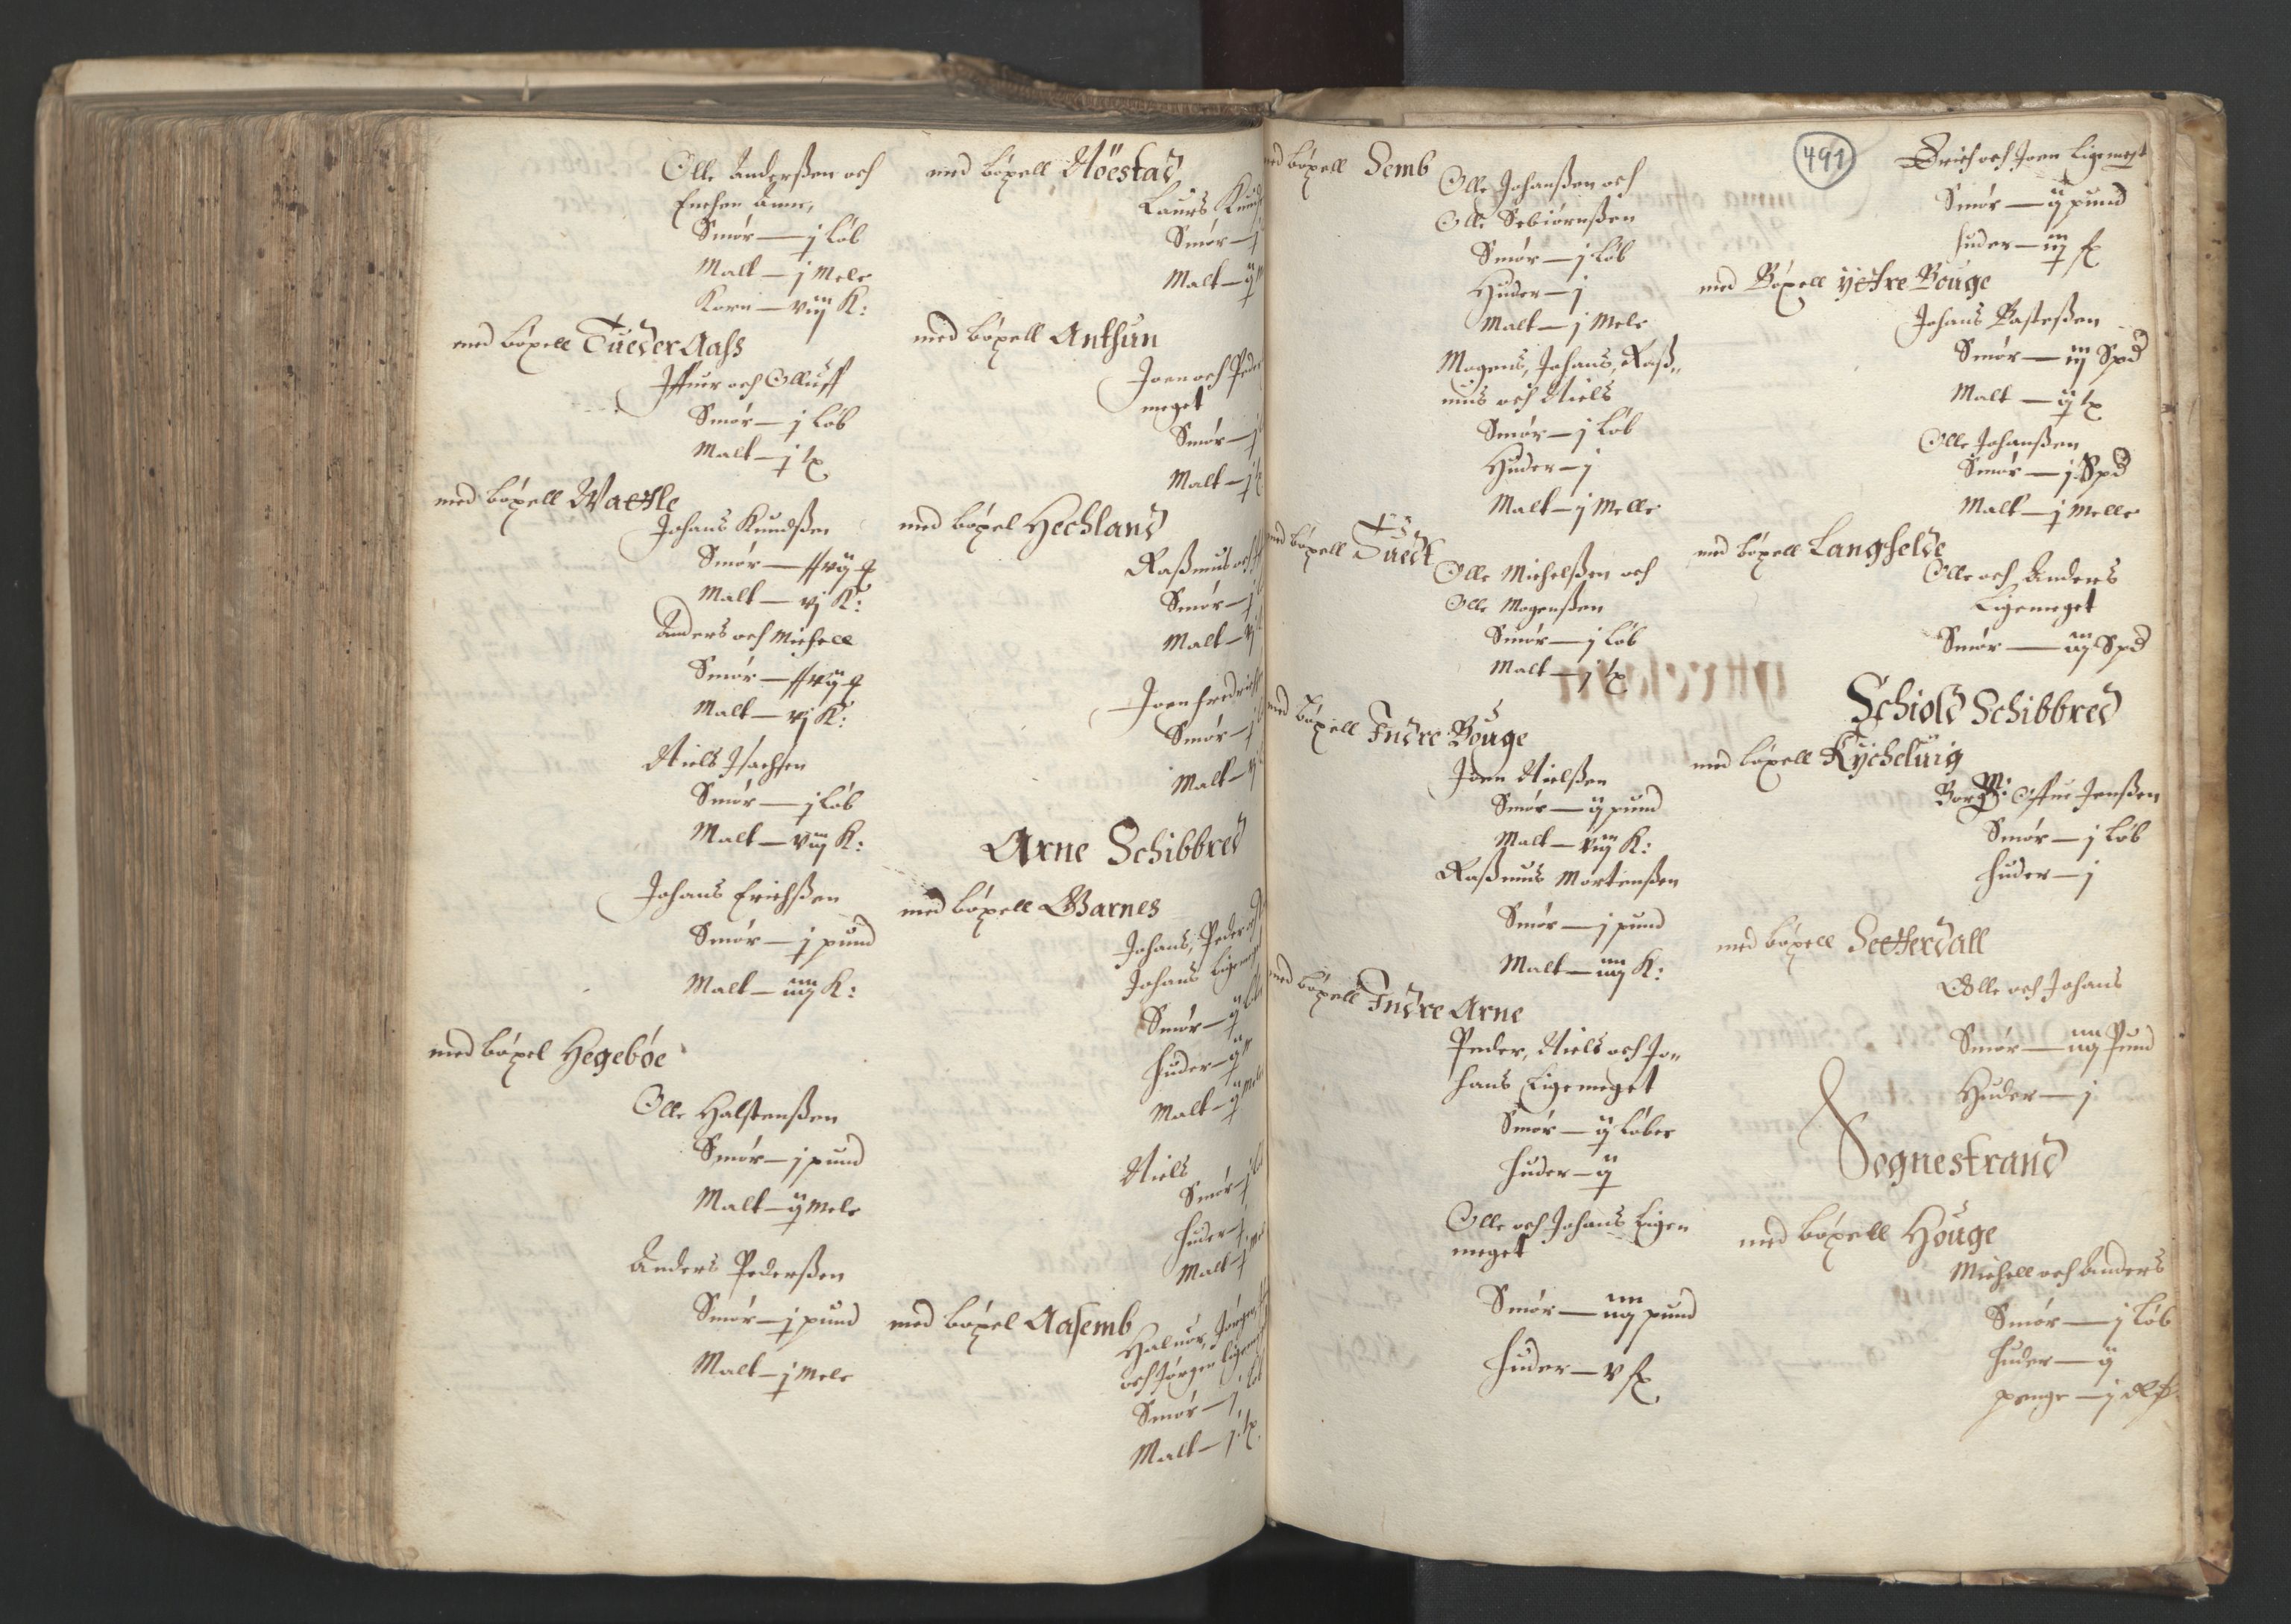 Olle Anderßen och
Enchen Anne,
Smør — j Løb
Malt — j Mele
Korn — viij K:
med bøxell Tueder Aass
Iffuer och Olluff
Smør — j Løb
Malt — j tx
med bøxell Waetle
Johans Knudßen
Smør —
Malt — vj K:
Anders och Michell
Smør —
Malt — vj K:
Niels Isachsen
Smør — j Løb
Malt — viij K:
Johans Erichßen
Smør — j pund
Malt — iiij K:
med bøxel Hegebøe
Olle Halstenßen
Smør — j pund
Malt — ij Mele
Anders Pederßen
Smør — j pund
Malt — j Mele
med bøxell Høestad
Laurs
Smør —
Malt —
med bøxell Anthun
Joen och
meget
Smør —
Malt —
med bøxel Hechland
Raßmus
Smør —
Malt —
Joen
Smør —
Malt —
Arne Schibbred
med bøxell Garnes
Johans, Peder
Johans
Smør — ij
Huder — ij
Malt — ij
Niels
Smør —
Huder —
Malt —
med bøxel Aasemb
Haluor, Jørgen
och Jørgen
Smør — j
Malt — j tx
491
med bøxell Semb
Olle Johanßen och
Olle Sebiørnßen
Smør — j Løb
Huder — j
Malt — j Mele
Mogens, Johans, Raß„
mus och Niels
Smør — j Løb
Huder — j
Malt — j Melle
med bøxell Tuedt
Olle Michelßen och
Olle Mogenßen
Smør — j Løb
Malt — j tx
med bøxell Indre Bouge
Joen Nielßen
Smør — ij pund
Malt — viij K:
Raßmus Mortenßen
Smør — j pund
Malt — iiij K:
med bøxell Indre Arne
Peder, Niels och Jo„
hans Ligemeget
Smør — ij Løber
Huder — ij
Olle och Johans Ligen
meget
Smør — iiij pund
Huder — v
Erich och Joen Ligemegt
Smør — ij pund
Huder — iij
med Bøxell ÿttre Bouge
Johans Basteßen
Smør — iij Spd
Malt — ij tx
Olle Johanßen
Smør — j Spd
Malt — j Melle
med bøxell Langhelde
Olle och Anders
Ligemeget
Smør — iij Spd
Schiold Schibbred
med bøxell Kÿcheluig
Borg M: Offue Jenßen
Smør — j Løb
Huder — j
med bøxell Seetterdall
Olle och Johans
Smør — iiij Pund
Huder — j
Sognestrand
med bøxell Houge
Michell och Anders
Smør — j Løb
Huder — ij
penge — j dlr